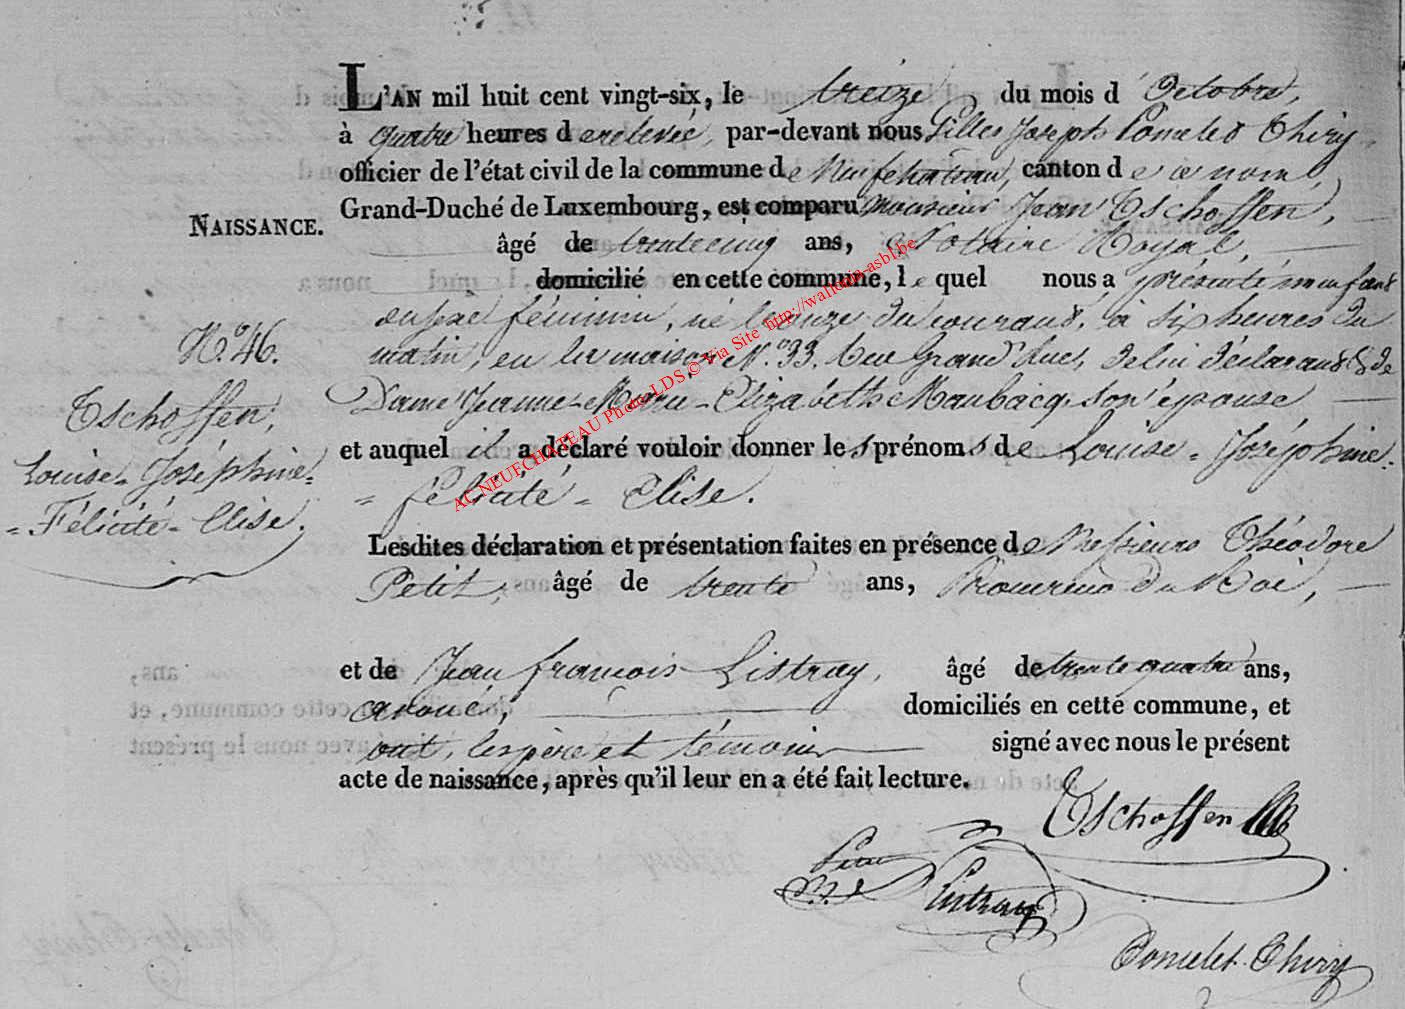 L'AN mil huit cent vingt-six, le treize du mois d'Octobre,
à quatre heures de relevée, par-devant nous Gilles Joseph Thiry
officier de l'état civil de la commune de Neufchateau, canton de ce nom,
Grand-Duché de Luxembourg, est comparu Monsieur Jean Tschoffen,
NAISSANCE.
âgé de trente cinq ans, Notaire Royal,
domicilié en cette commune, lequel nous a présenté un enfant
du sexe féminin, né le onze du courant, à six heures du
N.° 46.
matin, en la maison N.° 33. Rue Grand'Rue, de lui déclarant & de
Tschoffen,
Dame Jeanne-Marie-Elizabeth Maubacq son épouse
et auquel il a déclaré vouloir donner les prénoms de Louise-Joséphine-
Louise-Joséphine-
-félicité-Elise.
-Félicité-Elise.
Lesdites déclaration et présentation faites en présence de Messieurs Théodore
Petit, âgé de trente ans, Procureur du Roi,
et de Jean françois Listray, âgé de trente quatre ans,
avoué, domiciliés en cette commune, et
ont, les père et témoins signé avec nous le présent
acte de naissance, après qu'il leur en a été fait lecture.
Tschoffen
Petit
Listray
Thiry
AC NEUFCHATEAU Photo LDS © Via Site http://wallonia-asbl.be